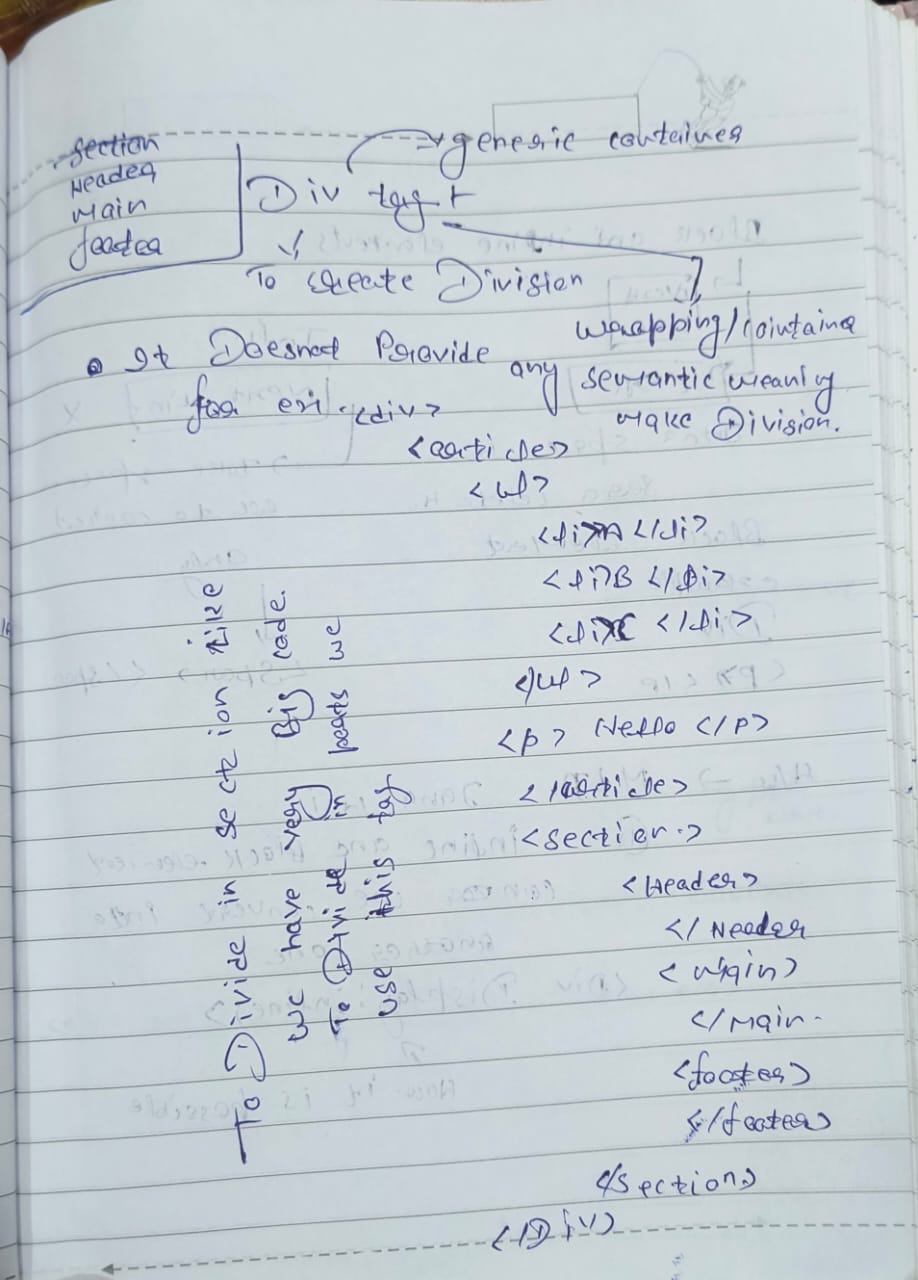 Section
Header
Main
footer
generic container
Div tag
To create Division
wrapping/cointaine
• It Doesnot Provide any semantic meaning
for ex: <div>
make Division.
<article>
<ul>
<li>A </li>
<li>B </li>
<li>C </li>
</ul>
<p> Hello </p>
</article>
<section>
<Header>
</Header
<Main>
</Main
<footer>
</footer>
</section>
</Div>
To Divide in section like
we have very Big code
To Divide in parts we
use this tag